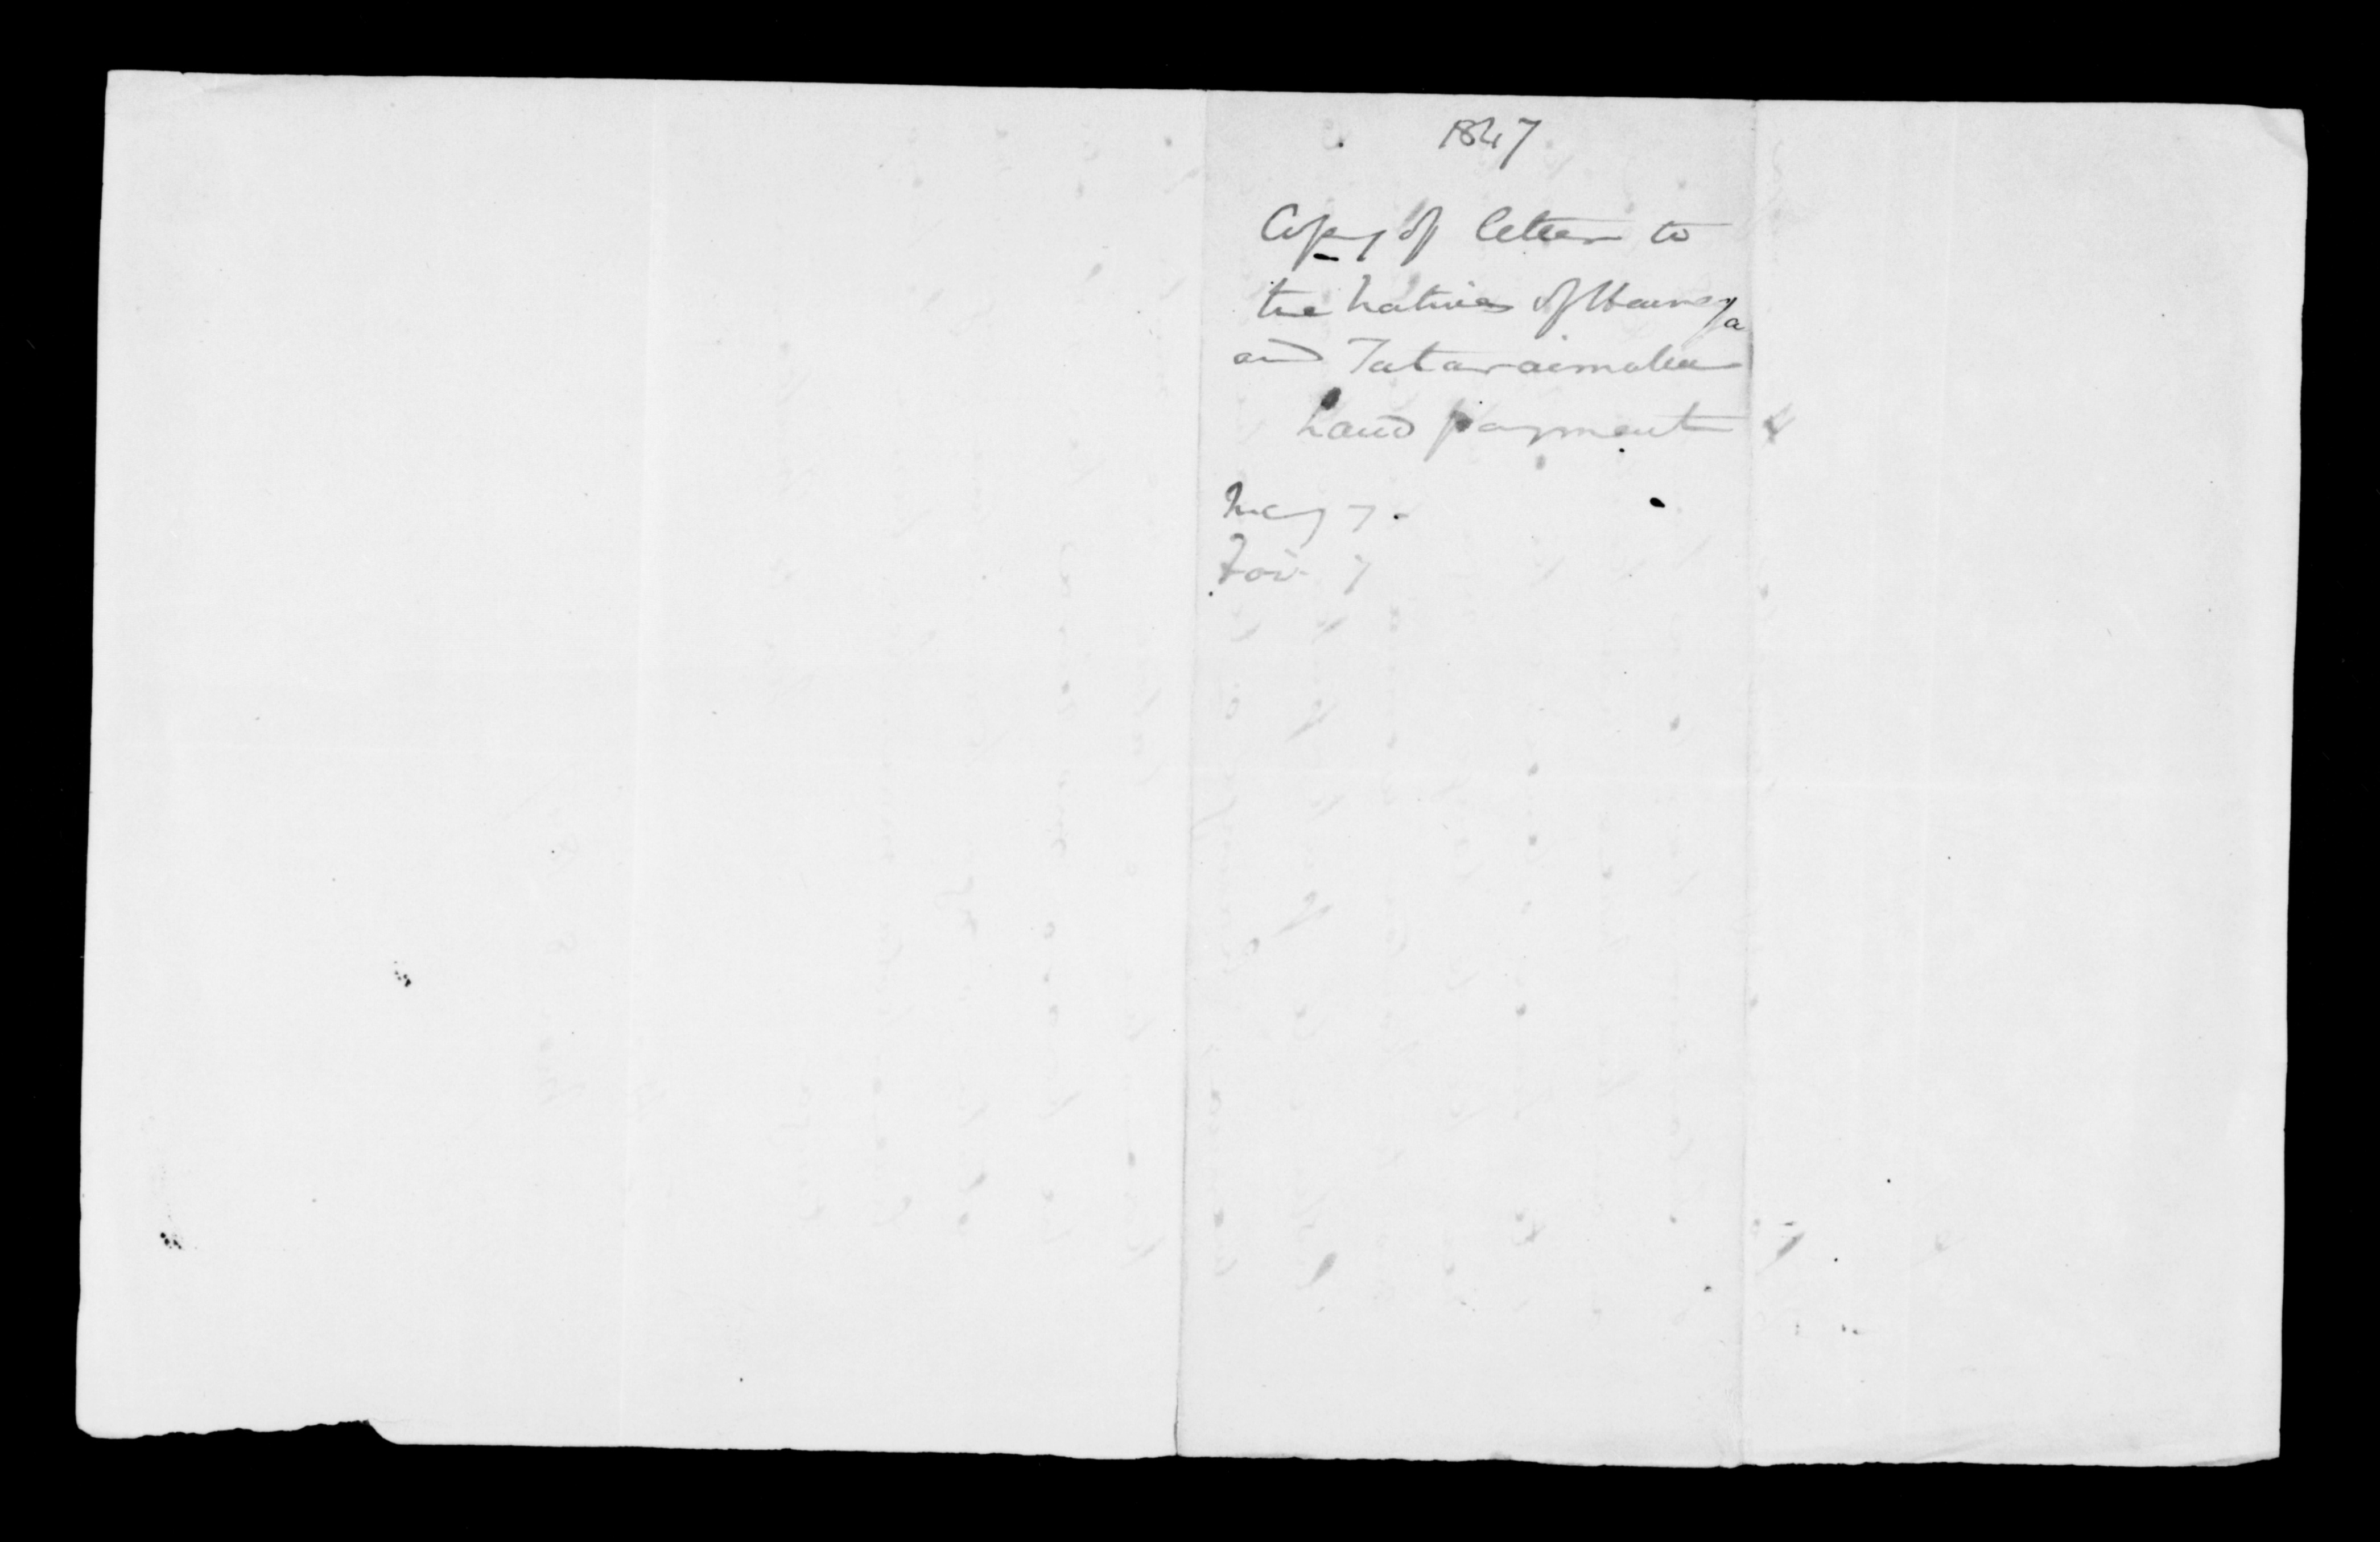 1847
Copy of letter to
the natives of
and Tataraimaka
Land payment
May 7.
Nov. 7